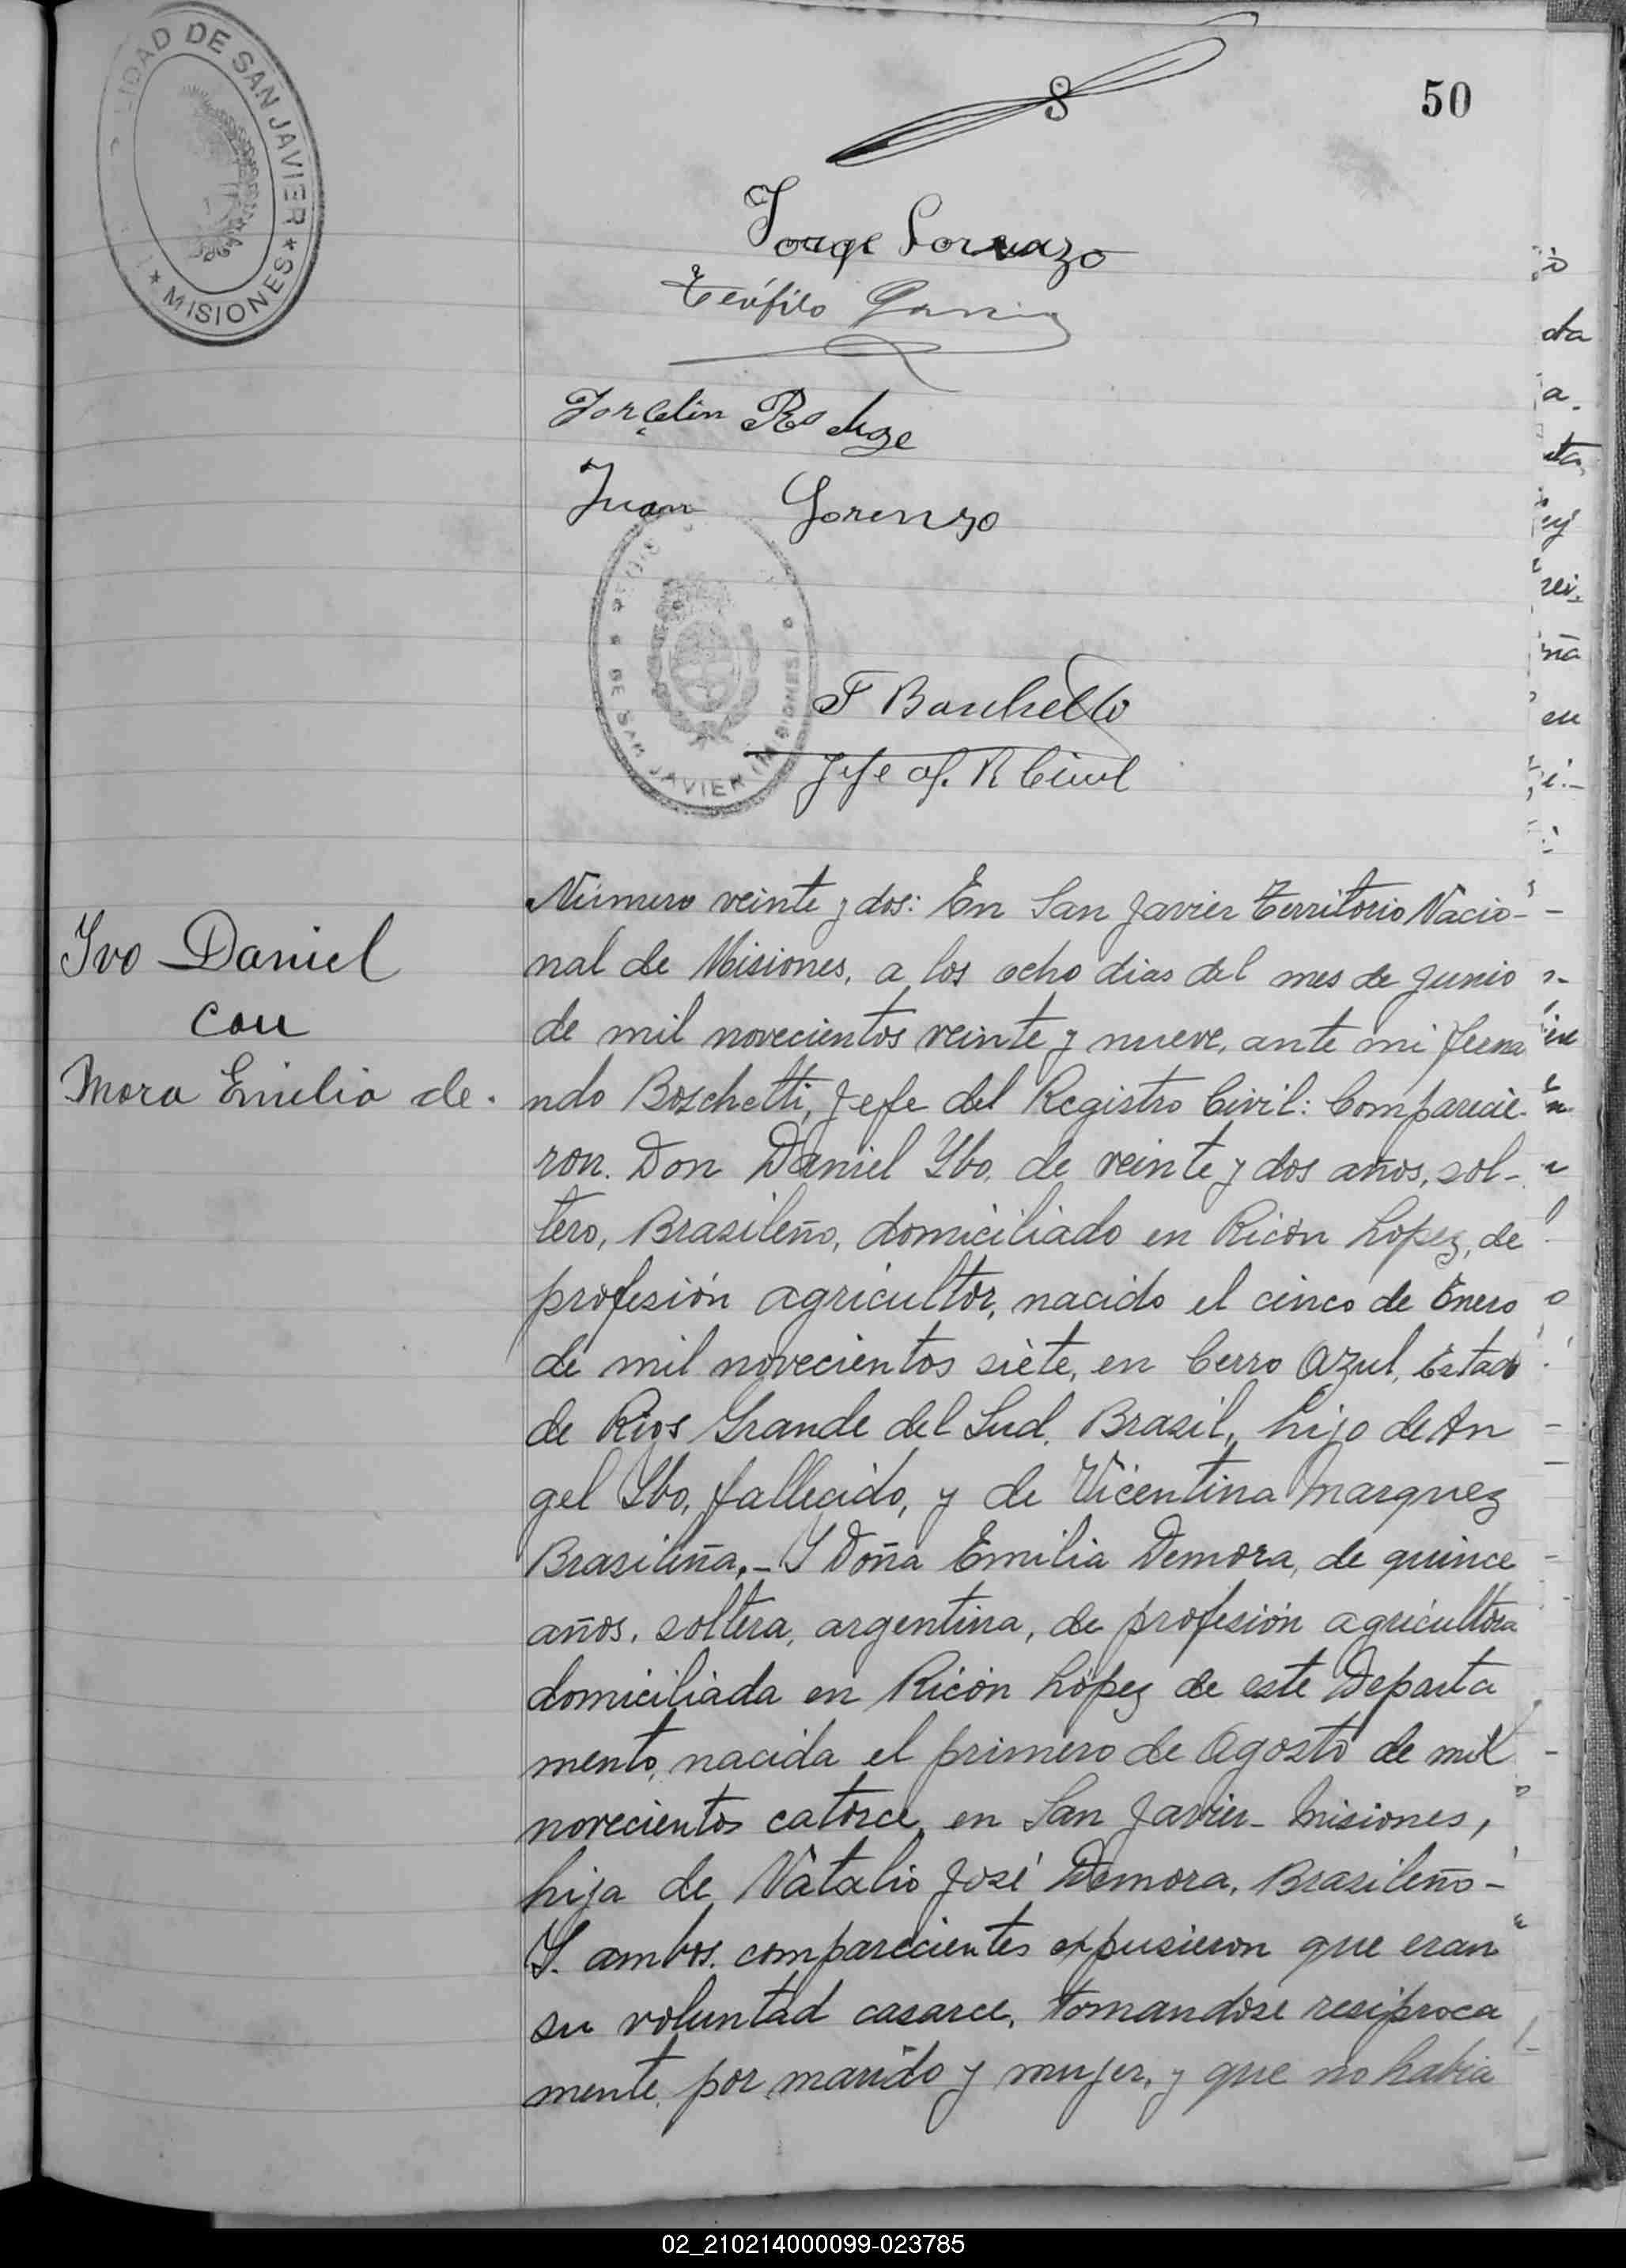 LIDAD DE SAN JAVIER
* MISIONES *
50
Jorge Lorenzo
Teófilo
Juan Lorenzo
DE SAN JAVIER (MISIONES)
F Boschetti
Jefe of. R Civil
Ivo Daniel
con
Mora Emilia de.
Número veinte y dos: En San Javier Territorio Nacio-
nal de Misiones, a los ocho dias del mes de Junio
de mil novecientos veinte y nueve, ante mi Ferna
ndo Boschetti, Jefe del Registro Civil: Comparecie-
ron. Don Daniel Ybo, de veinte y dos años, sol-
tero, Brasileño, domiciliado en Ricón López, de
profesión agricultor, nacido el cinco de Enero
de mil novecientos siete, en Cerro Azul, Estado
de Rios Grande del Sud. Brazil, hijo de An
gel Ybo, fallecido, y de Vicentina Marquez
Brasileña.- Y Doña Emilia Demora, de quince
años, soltera, argentina, de profesión agricultora
domiciliada en Ricón López de este Departa
mento, nacida el primero de Agosto de mil
novecientos catorce, en San Javier- Misiones,
hija de Natalio José Demora, Brasileño-
Y. ambos. comparecientes expusieron que eran
su voluntad casarce, tomandose resiproca
mente por marido y mujer, y que no habia
02_210214000099-023785